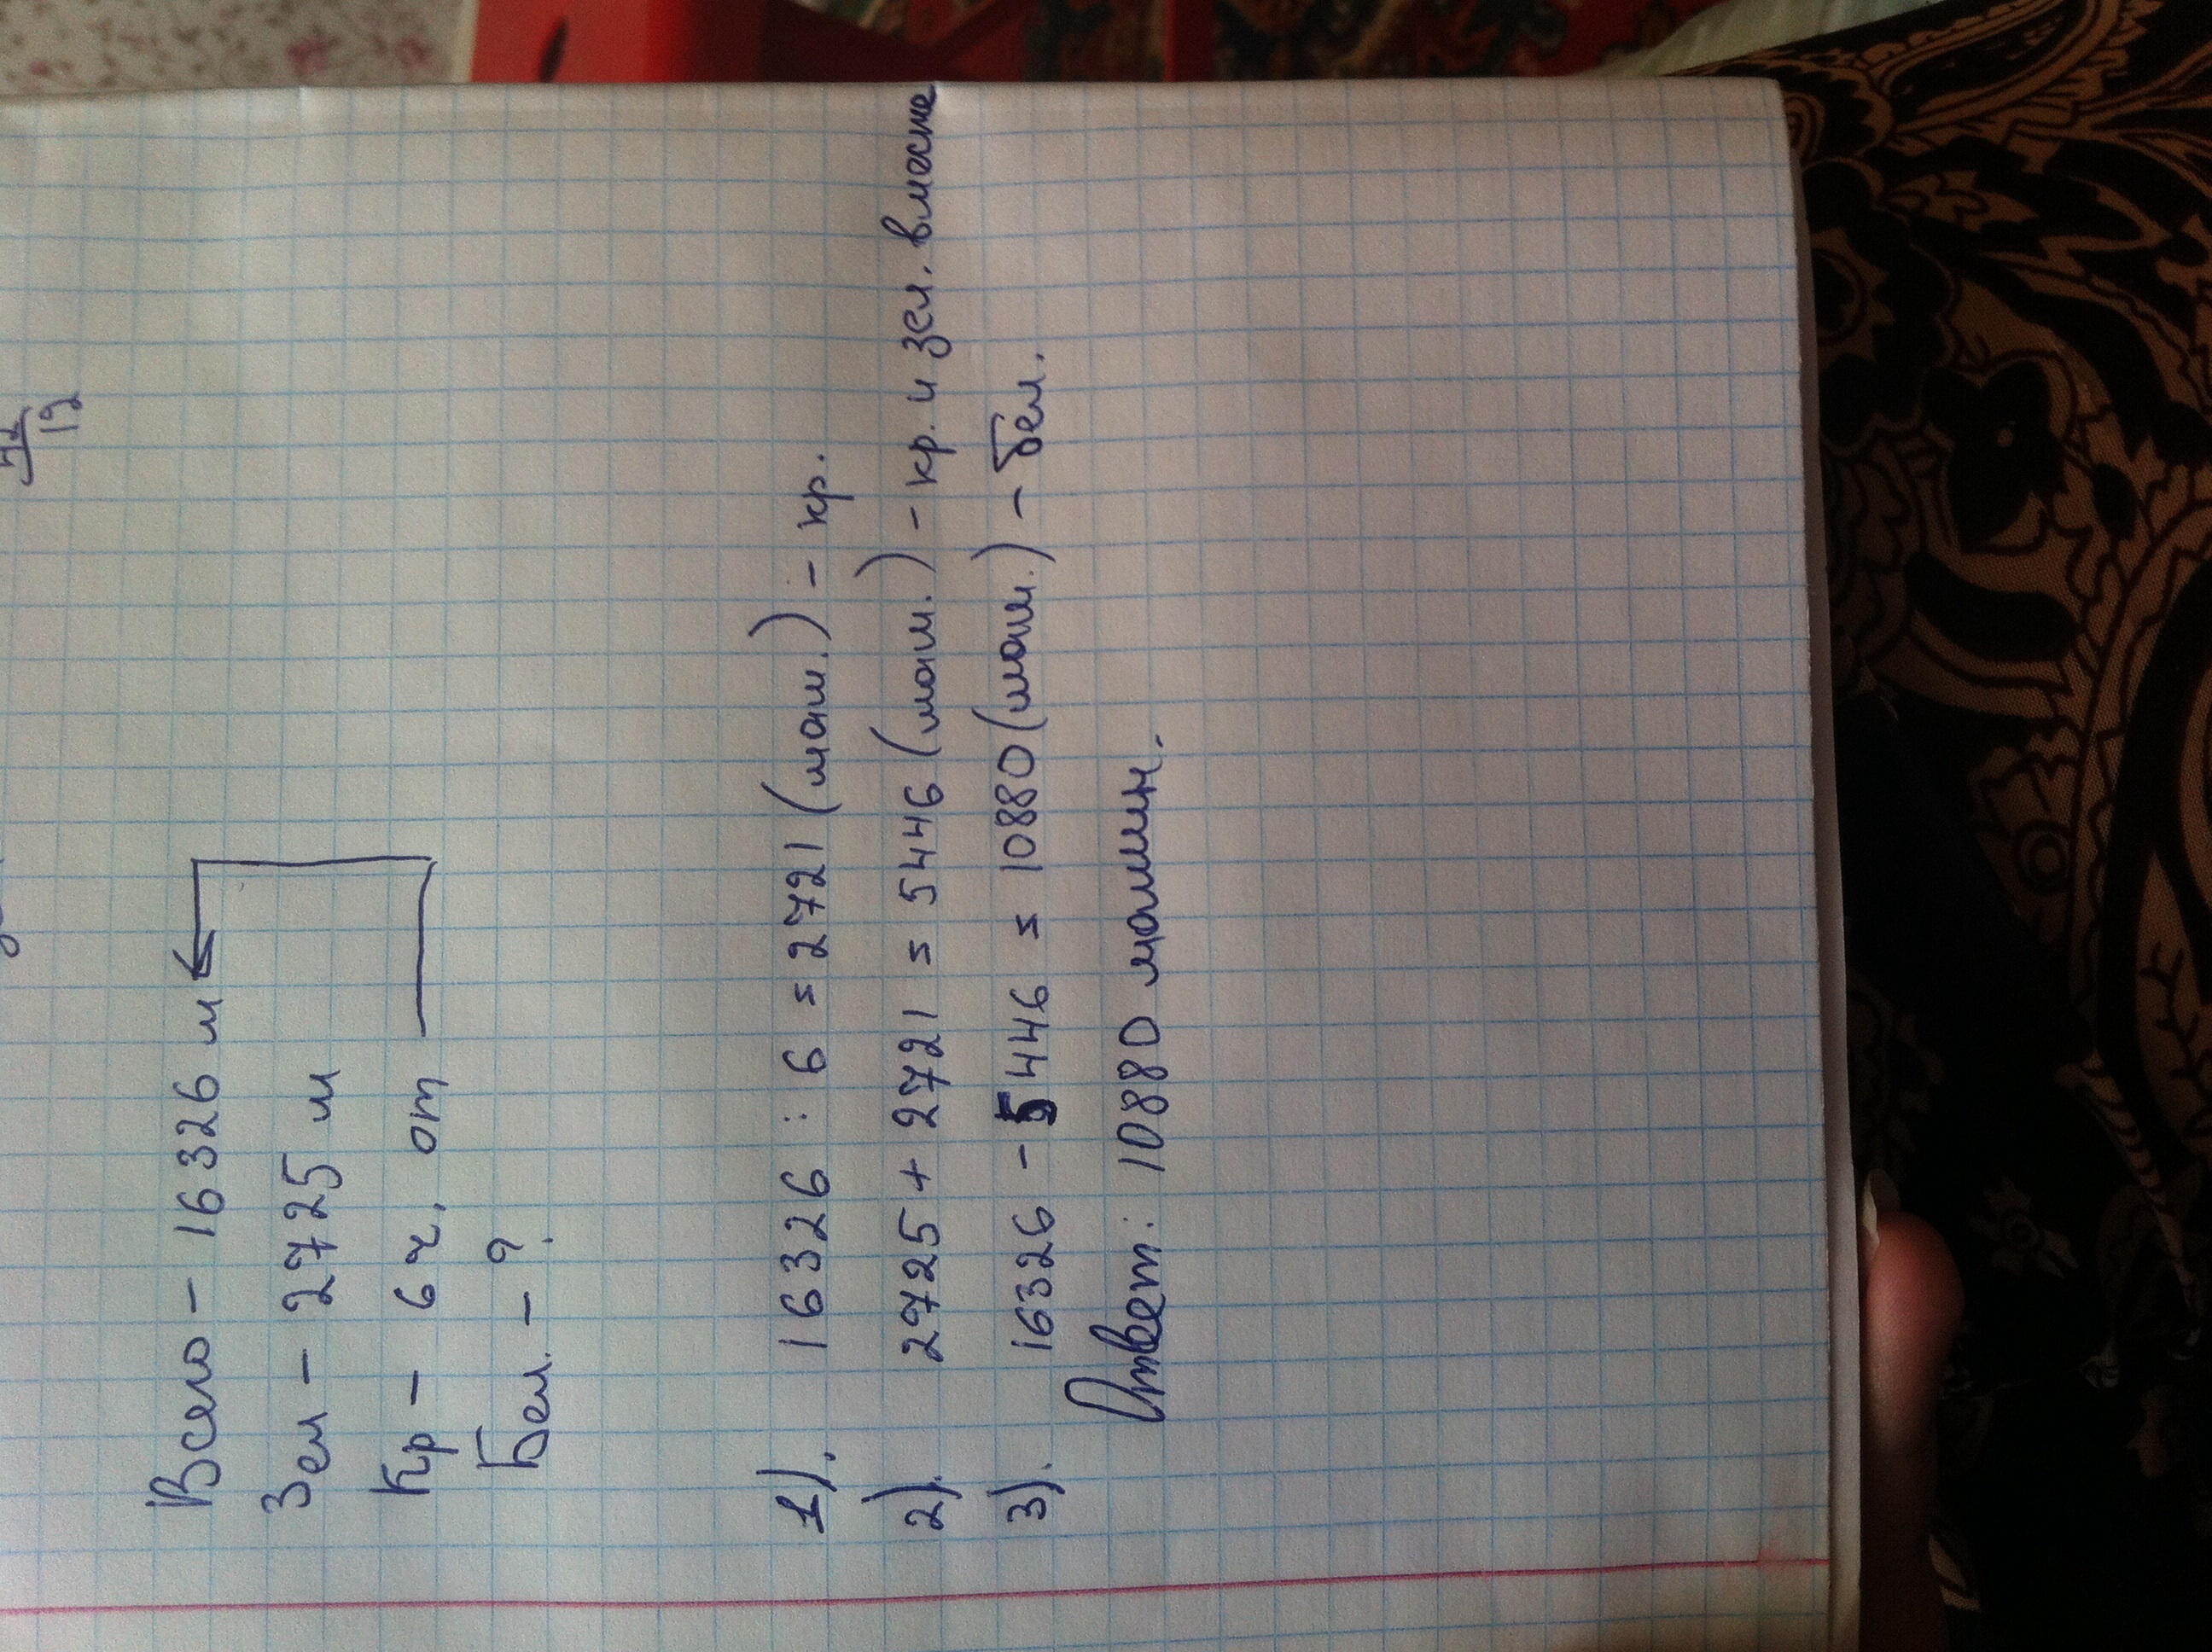 12
Всего - 16326 м
Зел - 2725 м
Кр - 6 ч. от
Бел. - ?
1). 16326 : 6 = 2721 (маш.) - кр.
2). 2725 + 2721 = 5446 (маш.) - кр. и зел. вместе
3). 16326 - 5446 = 10880 (маш.) - бел.
Ответ: 10880 машин.